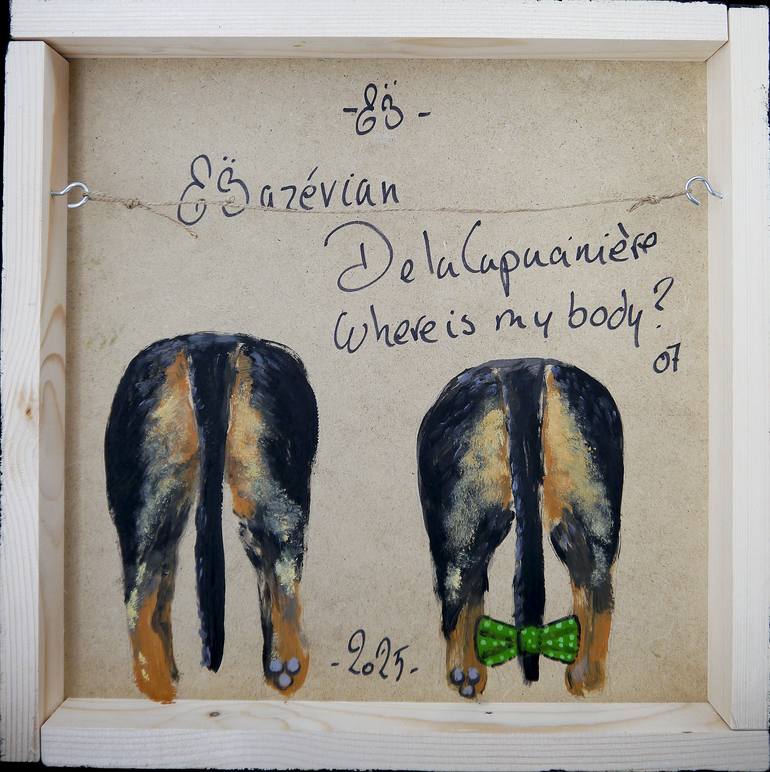 -EB̈-
EB̈arévian
DelaCapucinière
Where is my body?
07
-2025-